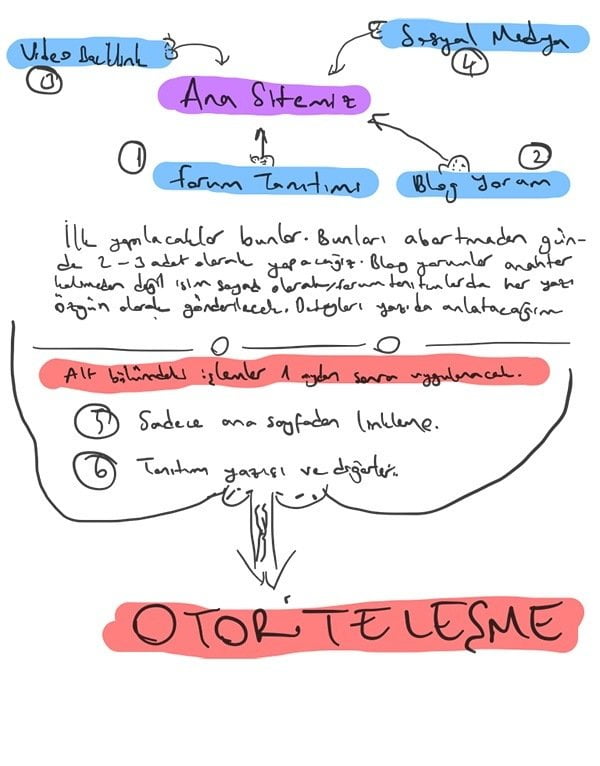 Video Backlink
3
Sosyal Medya
4
Ana Sitemiz
1
Forum Tanıtımı
2
Blog Yorum
İlk yapılacaklar bunlar. Bunları abartmadan gün-
de 2-3 adet olarak yapacağız. Blog yorumlar anahtar
kelimeden değil isim soyad olarak, forum tanıtımlarda her yazı
özgün olarak gönderilecek. Detayları yazıda anlatacağım
Alt bölümdeki işlemler 1 aydan sonra uygulanacak.
5 Sadece ana sayfadan linkleme.
6 Tanıtım yazısı ve diğerleri.
OTORİTELEŞME